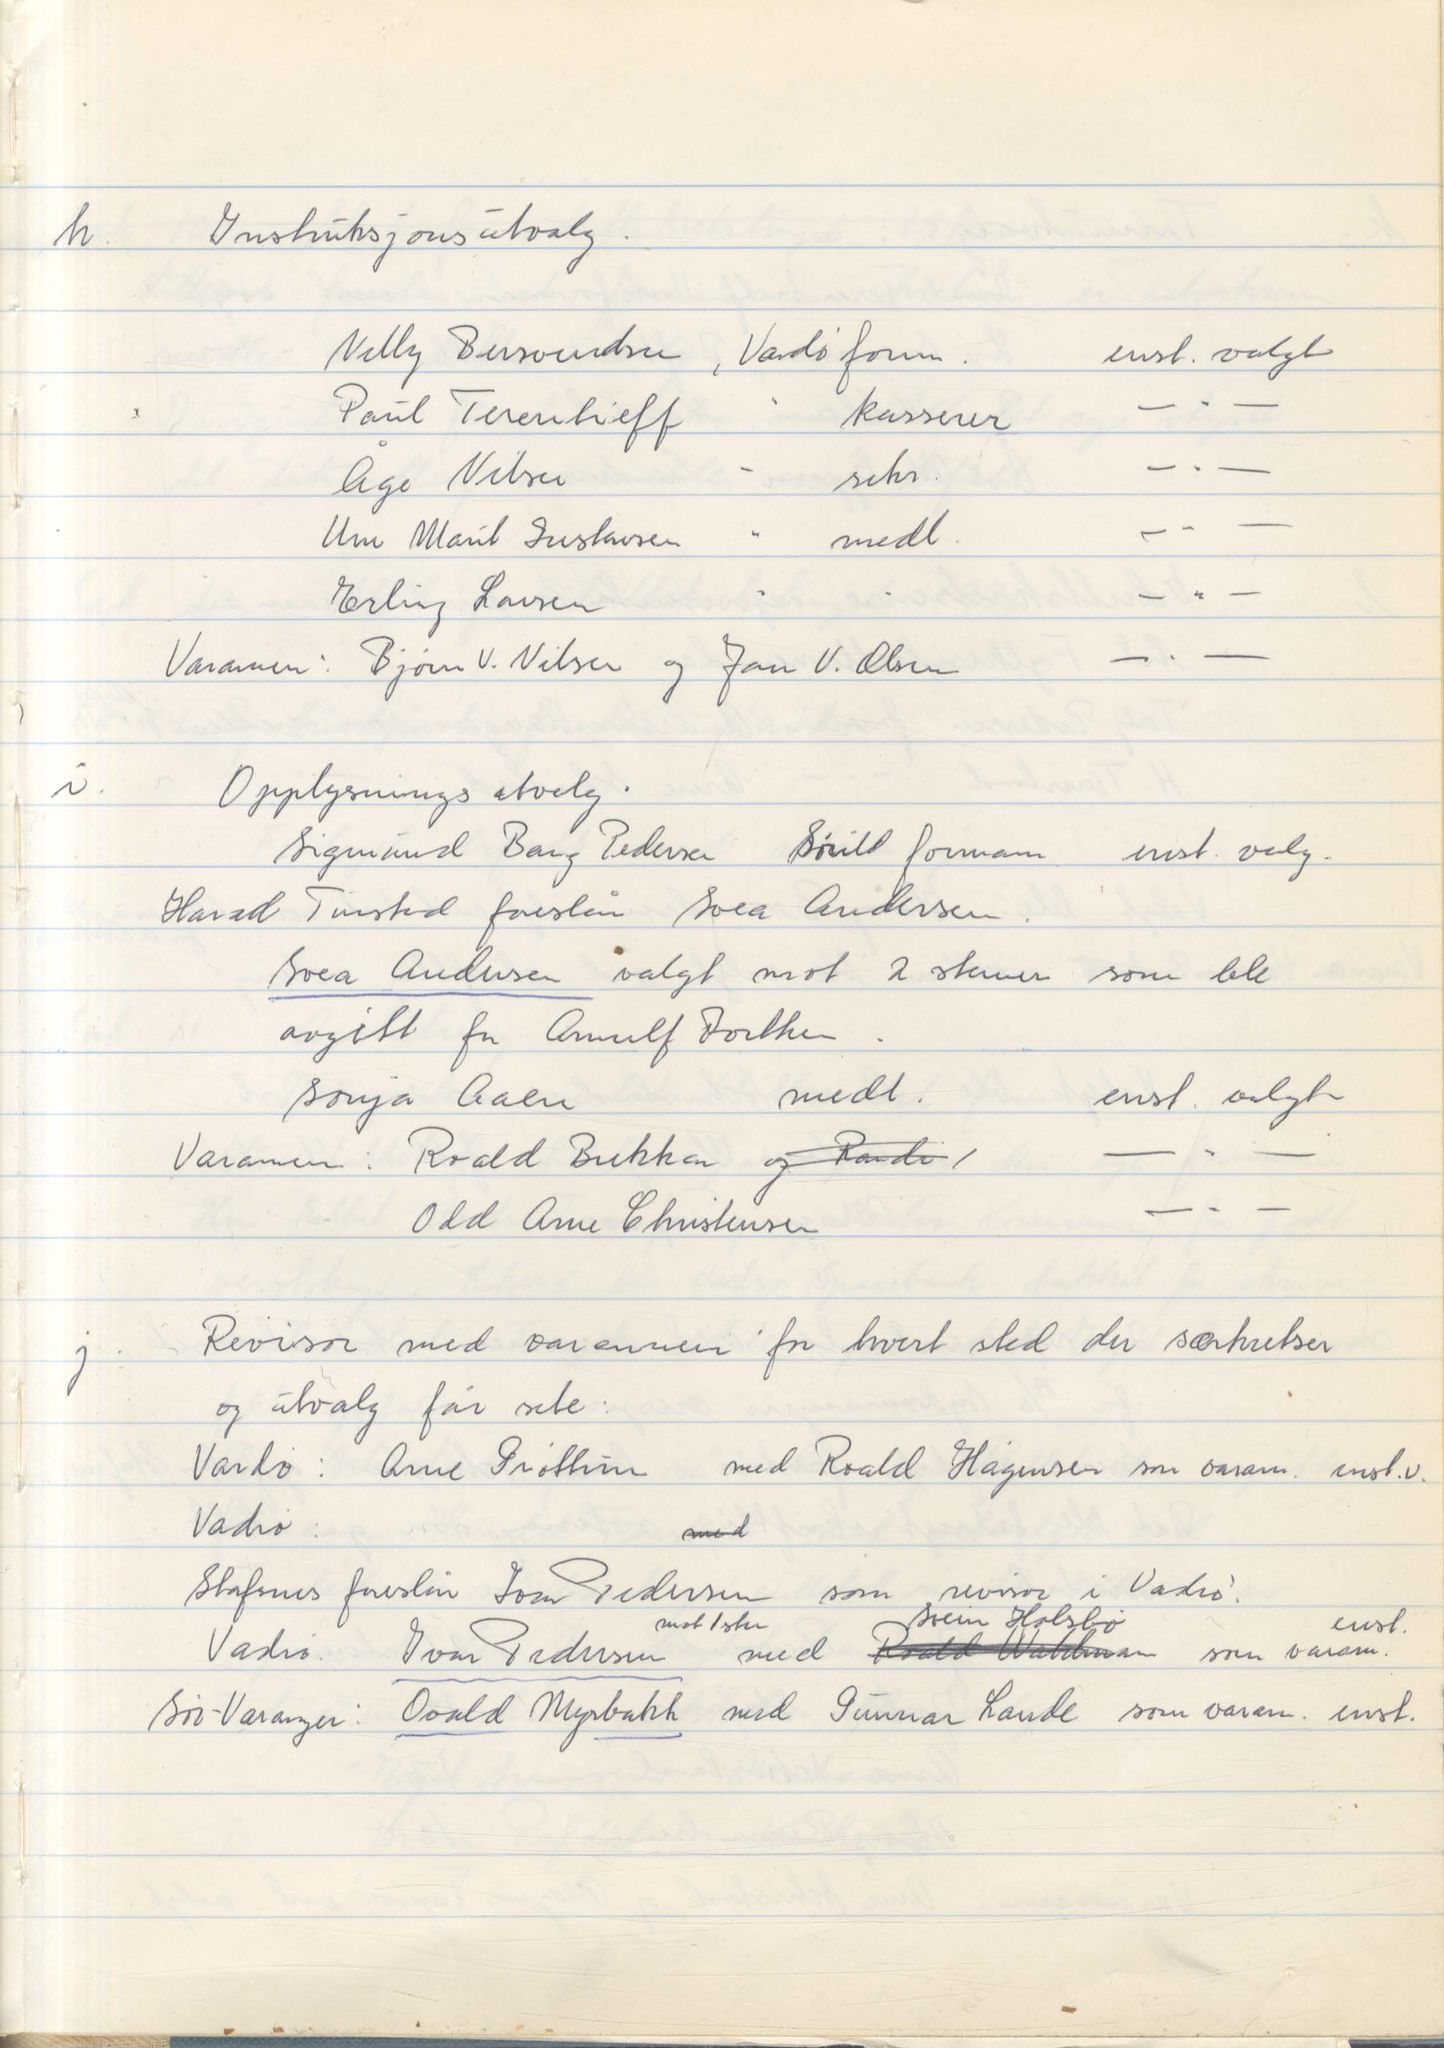 h. Instruksjonsutvalg.
Nelly Bersvendsen, Vardø form. enst. valgt
Paul Terentieff " kasserer — " —
Åge Nilsen " sekr. — " —
Unn Marit Gustavsen " medl. — " —
Erling Larsen " " — " —
Varamen: Bjørn V. Nilsen og Jan V. Olsen — " —
i. Opplysningsutvalg.
Sigmund Bang Pedersen formann enst. valg.
Harald Tinstad foreslår Svea Andersen.
Svea Andersen valgt mot 2 stemer som ble
avgitt for Arnulf
Sonja Aaen medl. enst. valgt
Varamen: Roald Bekken og Vardø / — " —
Odd Arne Christensen — " —
j. Revisor med varamenn for hvert sted der særkretser
og utvalg får sete:
Vardø: Arne Grøttum med Roald Hågensen som varam. enst. v.
Vadsø: med
Stafsnes foreslår Ivar Pedersen som revisor i Vadsø.
mot 1 stm Svein Holsbø enst.
Vadsø. Ivar Pedersen med Roald Waldman som varam.
Sør-Varanger: Osvald Myrbakk med Gunnar Lande som varam. enst.